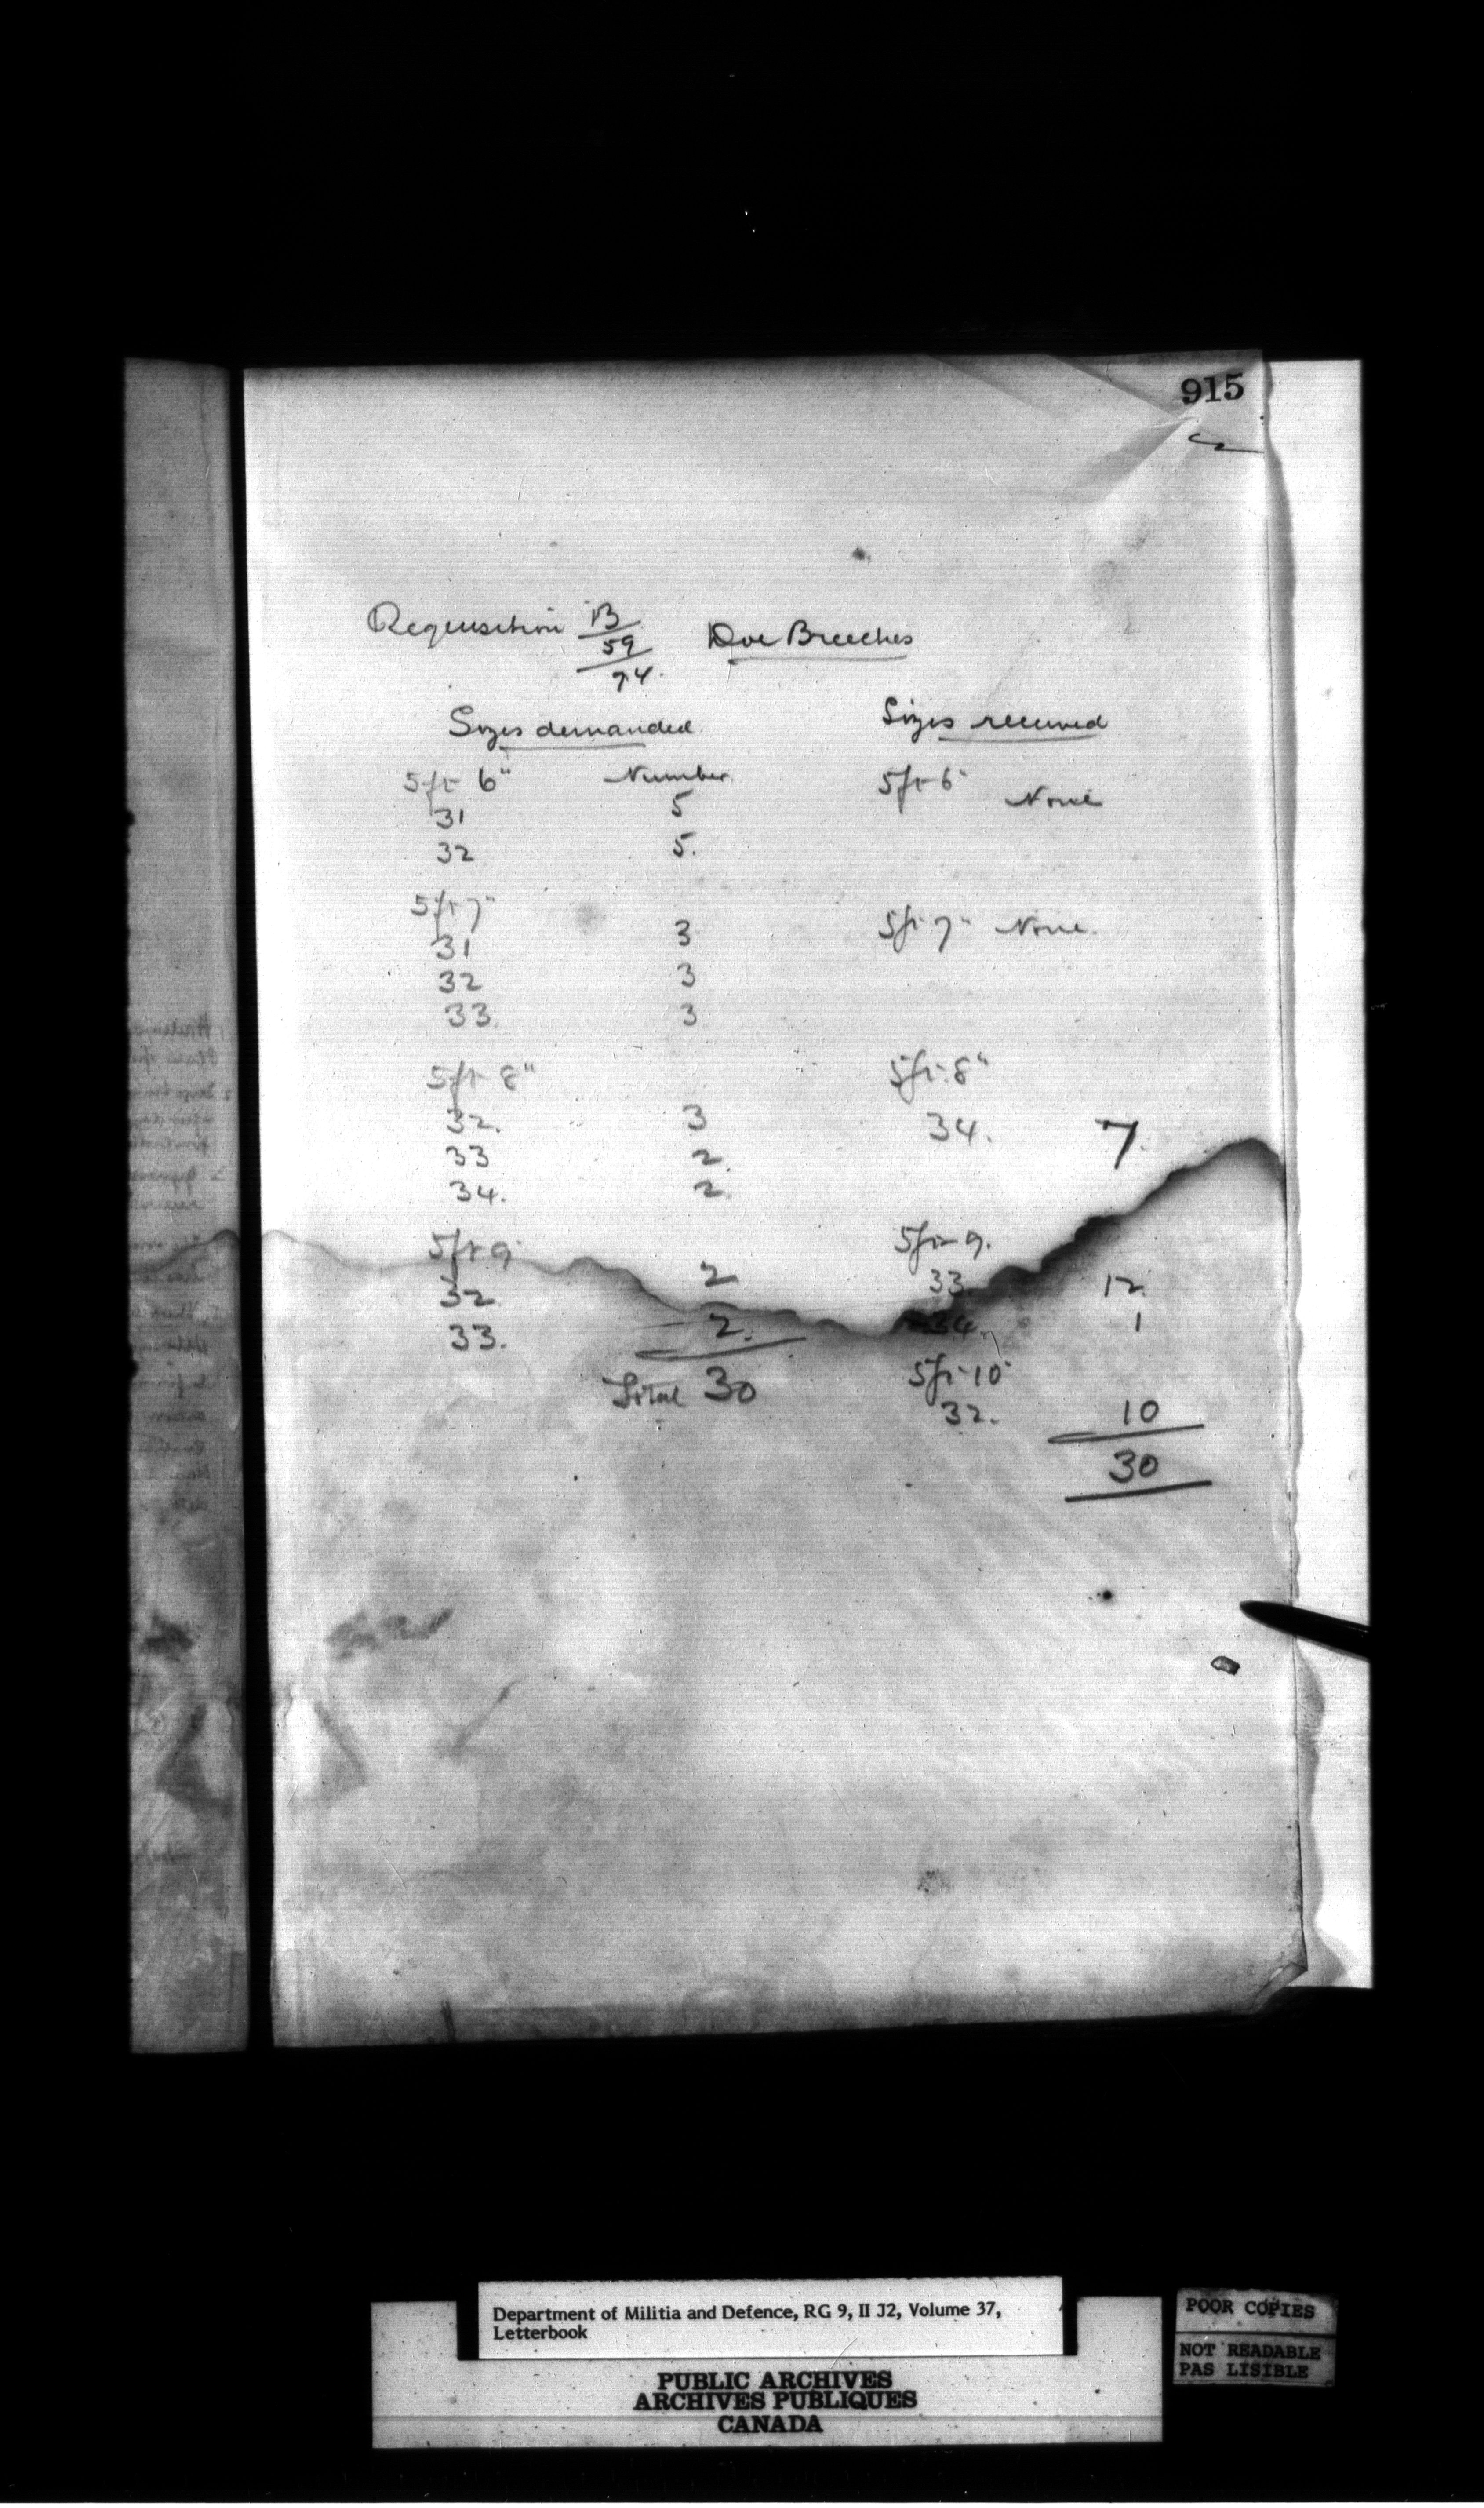 915
Requisition B/59/94. Doe Breeches
Sizes demanded Sizes received
5ft 6" Number 5ft 6"
31 5 None
32 5.
5ft 7"
31 3 5ft 7" None.
32 3
33 3
5ft 8" 5ft 8"
32. 3 34. 7
33 2.
34. 2
5ft 9 5ft 9.
32 2 33 12
33. 2. 34. 1
Total 30 5ft 10
32. 10
30
Department of Militia and Defence, RG 9, II J2, Volume 37,
Letterbook
PUBLIC ARCHIVES
ARCHIVES PUBLIQUES
CANADA
POOR COPIES
NOT READABLE
PAS LISIBLE